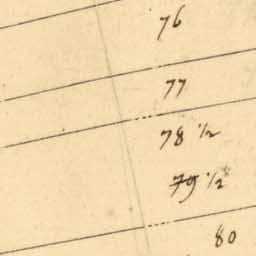 76
77
78 1/2
79 1/2
80